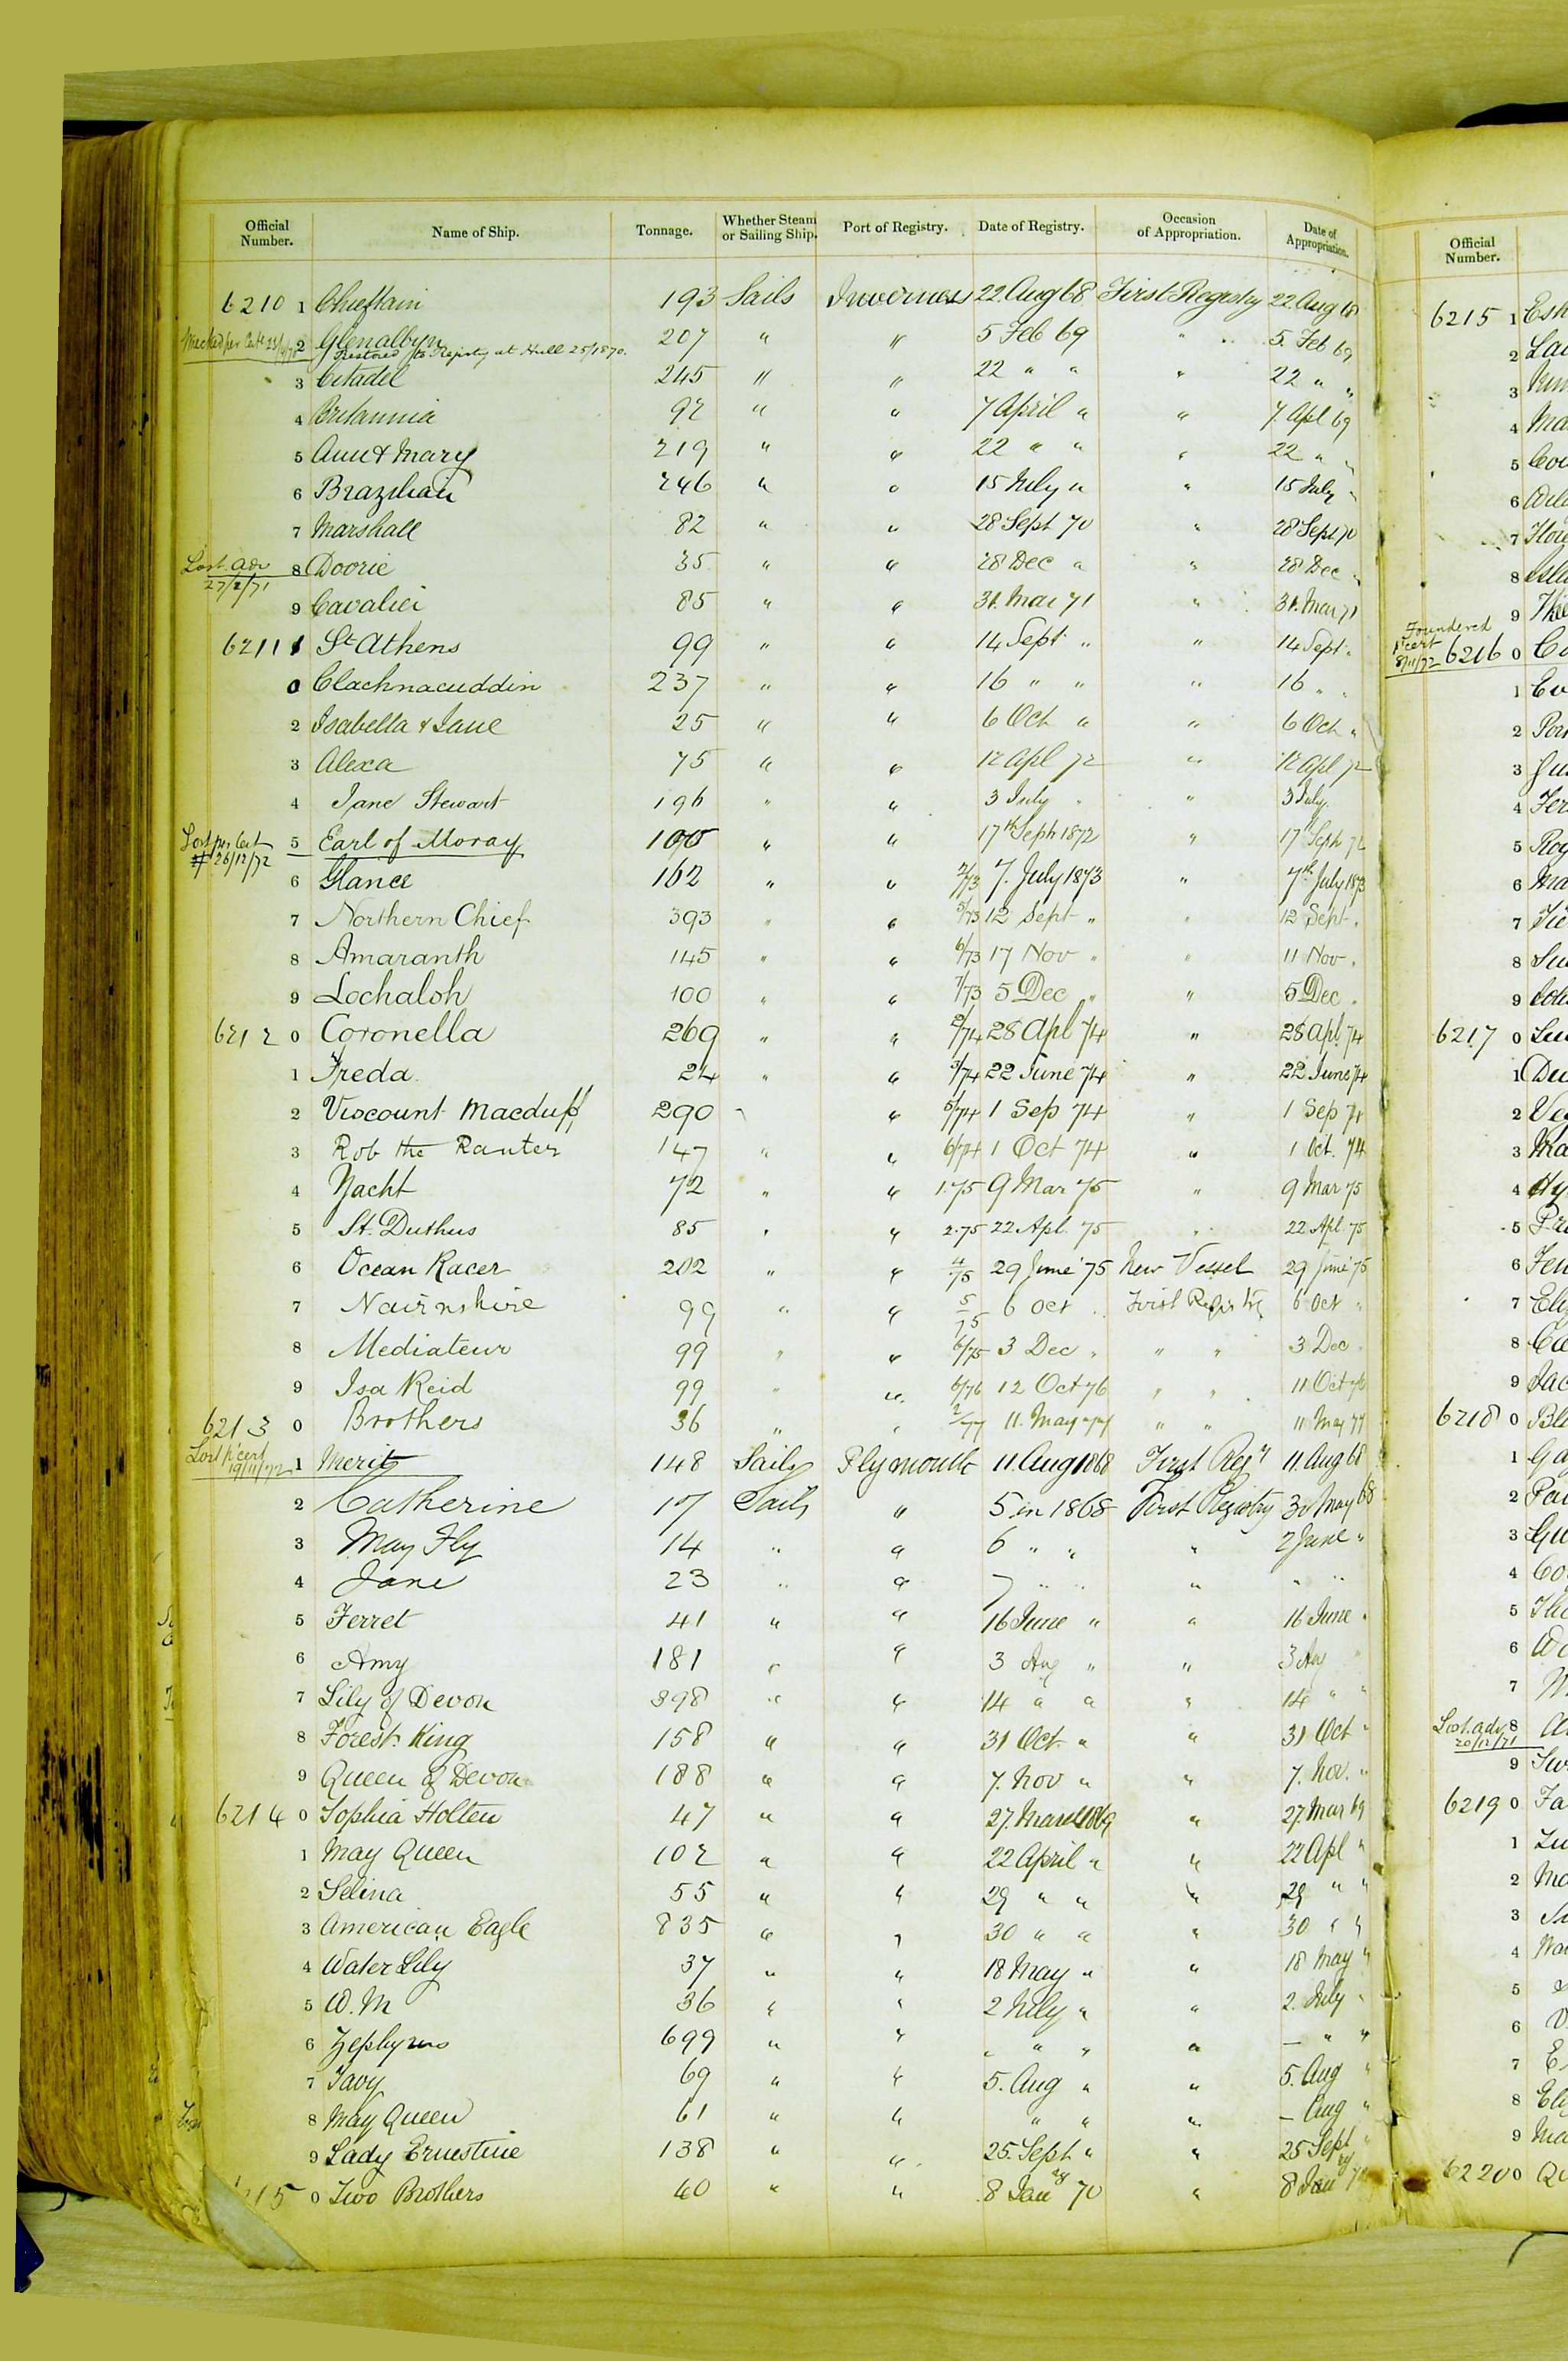 Official Number. Name of Ship. Tonnage. Whether Steam or Sailing Ship. Port of Registry. Date of Registry. Occasion of Appropriation. Date of Appropriation. Official Number.
6210 1 Chieftain 193 Sails Inverness 22 Aug 68 First Registry 22 Aug 68
2 Glenalbyn 207 " " 5 Feb 69 " 5. Feb 69
restored to Registry at Hull 25/1870.
3 Citadel 245 " " 22 " " " 22 " "
4 Britannia 92 " " 7 April " " 7. Apl 69
5 Ann & Mary 219 " " 22 " " " 22 " "
6 Brazilian 246 " " 15 July " " 15 July "
7 Marshall 82 " " 28 Sept 70 " 28 Sept 70
Lost. adv 27/2/71 8 Doorie 35 " " 28 Dec " " 28 Dec "
9 Cavalier 85 " " 31. Mar 71 " 31. Mar 71
6211 1 St Athens 99 " " 14 Sept " " 14 Sept "
0 Clachnacuddin 237 " " 16 " " " 16 " "
2 Isabella & Jane 25 " " 6 Oct " " 6 Oct "
3 Alexa 75 " " 12 Apl 72 " 12 Apl 72
4 Jane Stewart 196 " " 3 July " " 3 July.
Lost per Cert 26/12/72 5 Earl of Moray 100 " " 17th Sept 1872 " 17 Sept 72
6 Glance 162 " " 2/73 7. July 1873 " 7th July 1873
7 Northern Chief 393 " " 3/73 12 Sept " " 12 Sept.
8 Amaranth 145 " " 6/73 17 Nov " " 11 Nov.
9 Lochalsh 100 " " 7/73 5 Dec " " 5 Dec.
6212 0 Coronella 269 " " 2/74 28 Apl 74 " 28 Apl 74
1 Freda 24 " " 3/74 22 June 74 " 22 June 74
2 Viscount Macduff 290 " " 5/74 1 Sep 74 " 1 Sep 74
3 Rob the Ranter 147 " " 6/74 1 Oct 74 " 1 Oct. 74
4 Yacht 72 " " 1.75 9 Mar 75 " 9 Mar 75
5 St. Duthus 85 " " 2.75 22 Apl. 75 " 22 Apl. 75
6 Ocean Racer 202 " " 4/75 29 June 75 New Vessel 29 June 75
7 Nairnshire 99 " " 5/75 6 Oct. First Registry 6 Oct "
8 Mediateur 99 " " 6/75 3 Dec. " " 3 Dec.
9 Isa Reid 99 " " 6/76 12 Oct 76 " " 11 Oct 76
6213 0 Brothers 36 " " 2/77 11. May 77 " " 11 May 77
Lost p cert 19/11/72 1 Merit 148 Sails Plymouth 11. Aug 1868 First Regy 11. Aug 68
2 Catherine 17 Sails " 5 in 1868 First Registry 30 May 68
3 May Fly 14 " " 6 " " " 2 June "
4 Jane 23 " " 7 " " " " "
5 Ferret 41 " " 16 June " " 16 June "
6 Amy 181 " " 3 Aug " " 3 Aug "
7 Lily of Devon 398 " " 14 " " " 14 " "
8 Forest King 158 " " 31 Oct. " " 31 Oct "
9 Queen of Devon 188 " " 7. Nov " " 7. Nov. "
6214 0 Sophia Holten 47 " " 27. March 1869 " 27. Mar 69
1 May Queen 102 " " 22 April " " 22 Apl "
2 Selina 55 " " 29 " " " 29 " "
3 American Eagle 835 " " 30 " " " 30 " "
4 Water Lily 37 " " 18 May " " 18 May "
5 W.M 36 " " 2 July " " 2. July "
6 Zephyrus 699 " " " " " " — " "
7 Tavy 69 " " 5. Aug " " 5. Aug "
8 May Queen 61 " " " " " – Aug "
9 Lady Ernestine 138 " " 25. Sept " " 25 Sept "
0 Two Brothers 40 " " 8 Jany 70 " 8 Jany 70
6215 1
2
3
4
5
6
7
8
9
Foundered p cert 8/11/72 6216 0
1
2
3
4
5
6
7
8
9
6217 0
1
2
3
4
5
6
7
8
9
6218 0
1
2
3
4
5
6
7
Lost. adv 20/12/71 8
9
6219 0
1
2
3
4
5
6
7
8
9
6220 0